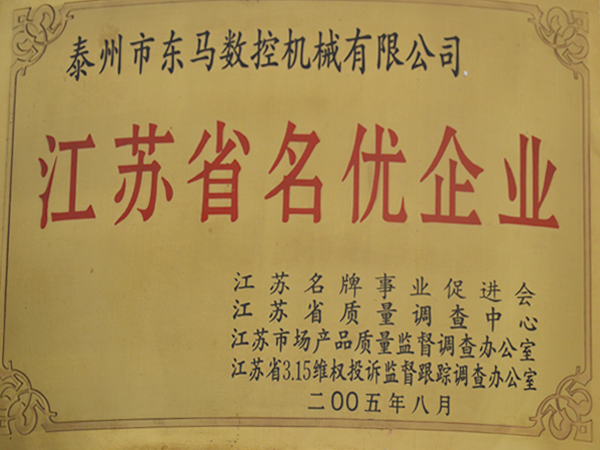 泰州市东马数控机械有限公司
江苏省名优企业
江苏名牌事业促进会
江苏省质量调查中心
江苏市场产品质量监督调查办公室
江苏省3.15维权投诉监督跟踪调查办公室
二00五年八月